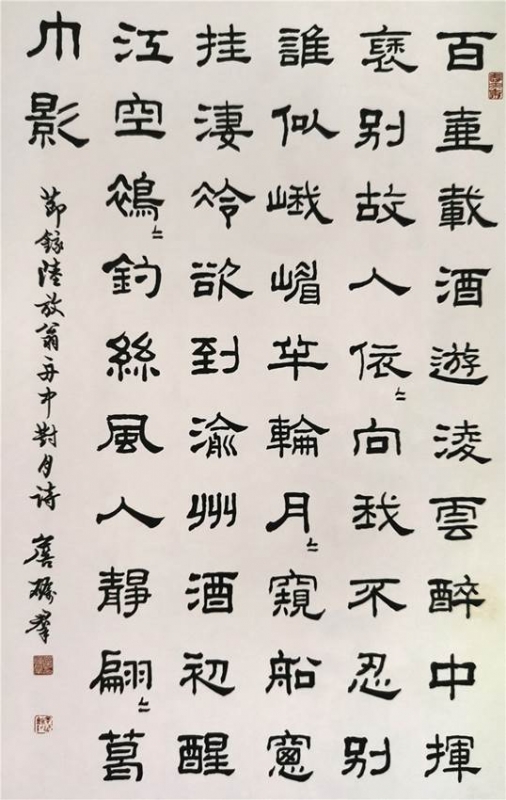 百壺載酒遊淩雲醉中揮
褎別故人依〻向我不忍別
誰似峨嵋半輪月〻窺船窻
挂淒冷欲到渝州酒初醒
江空裊〻釣絲風人靜翩〻葛
巾影
節錄陸放翁舟中對月詩 羣